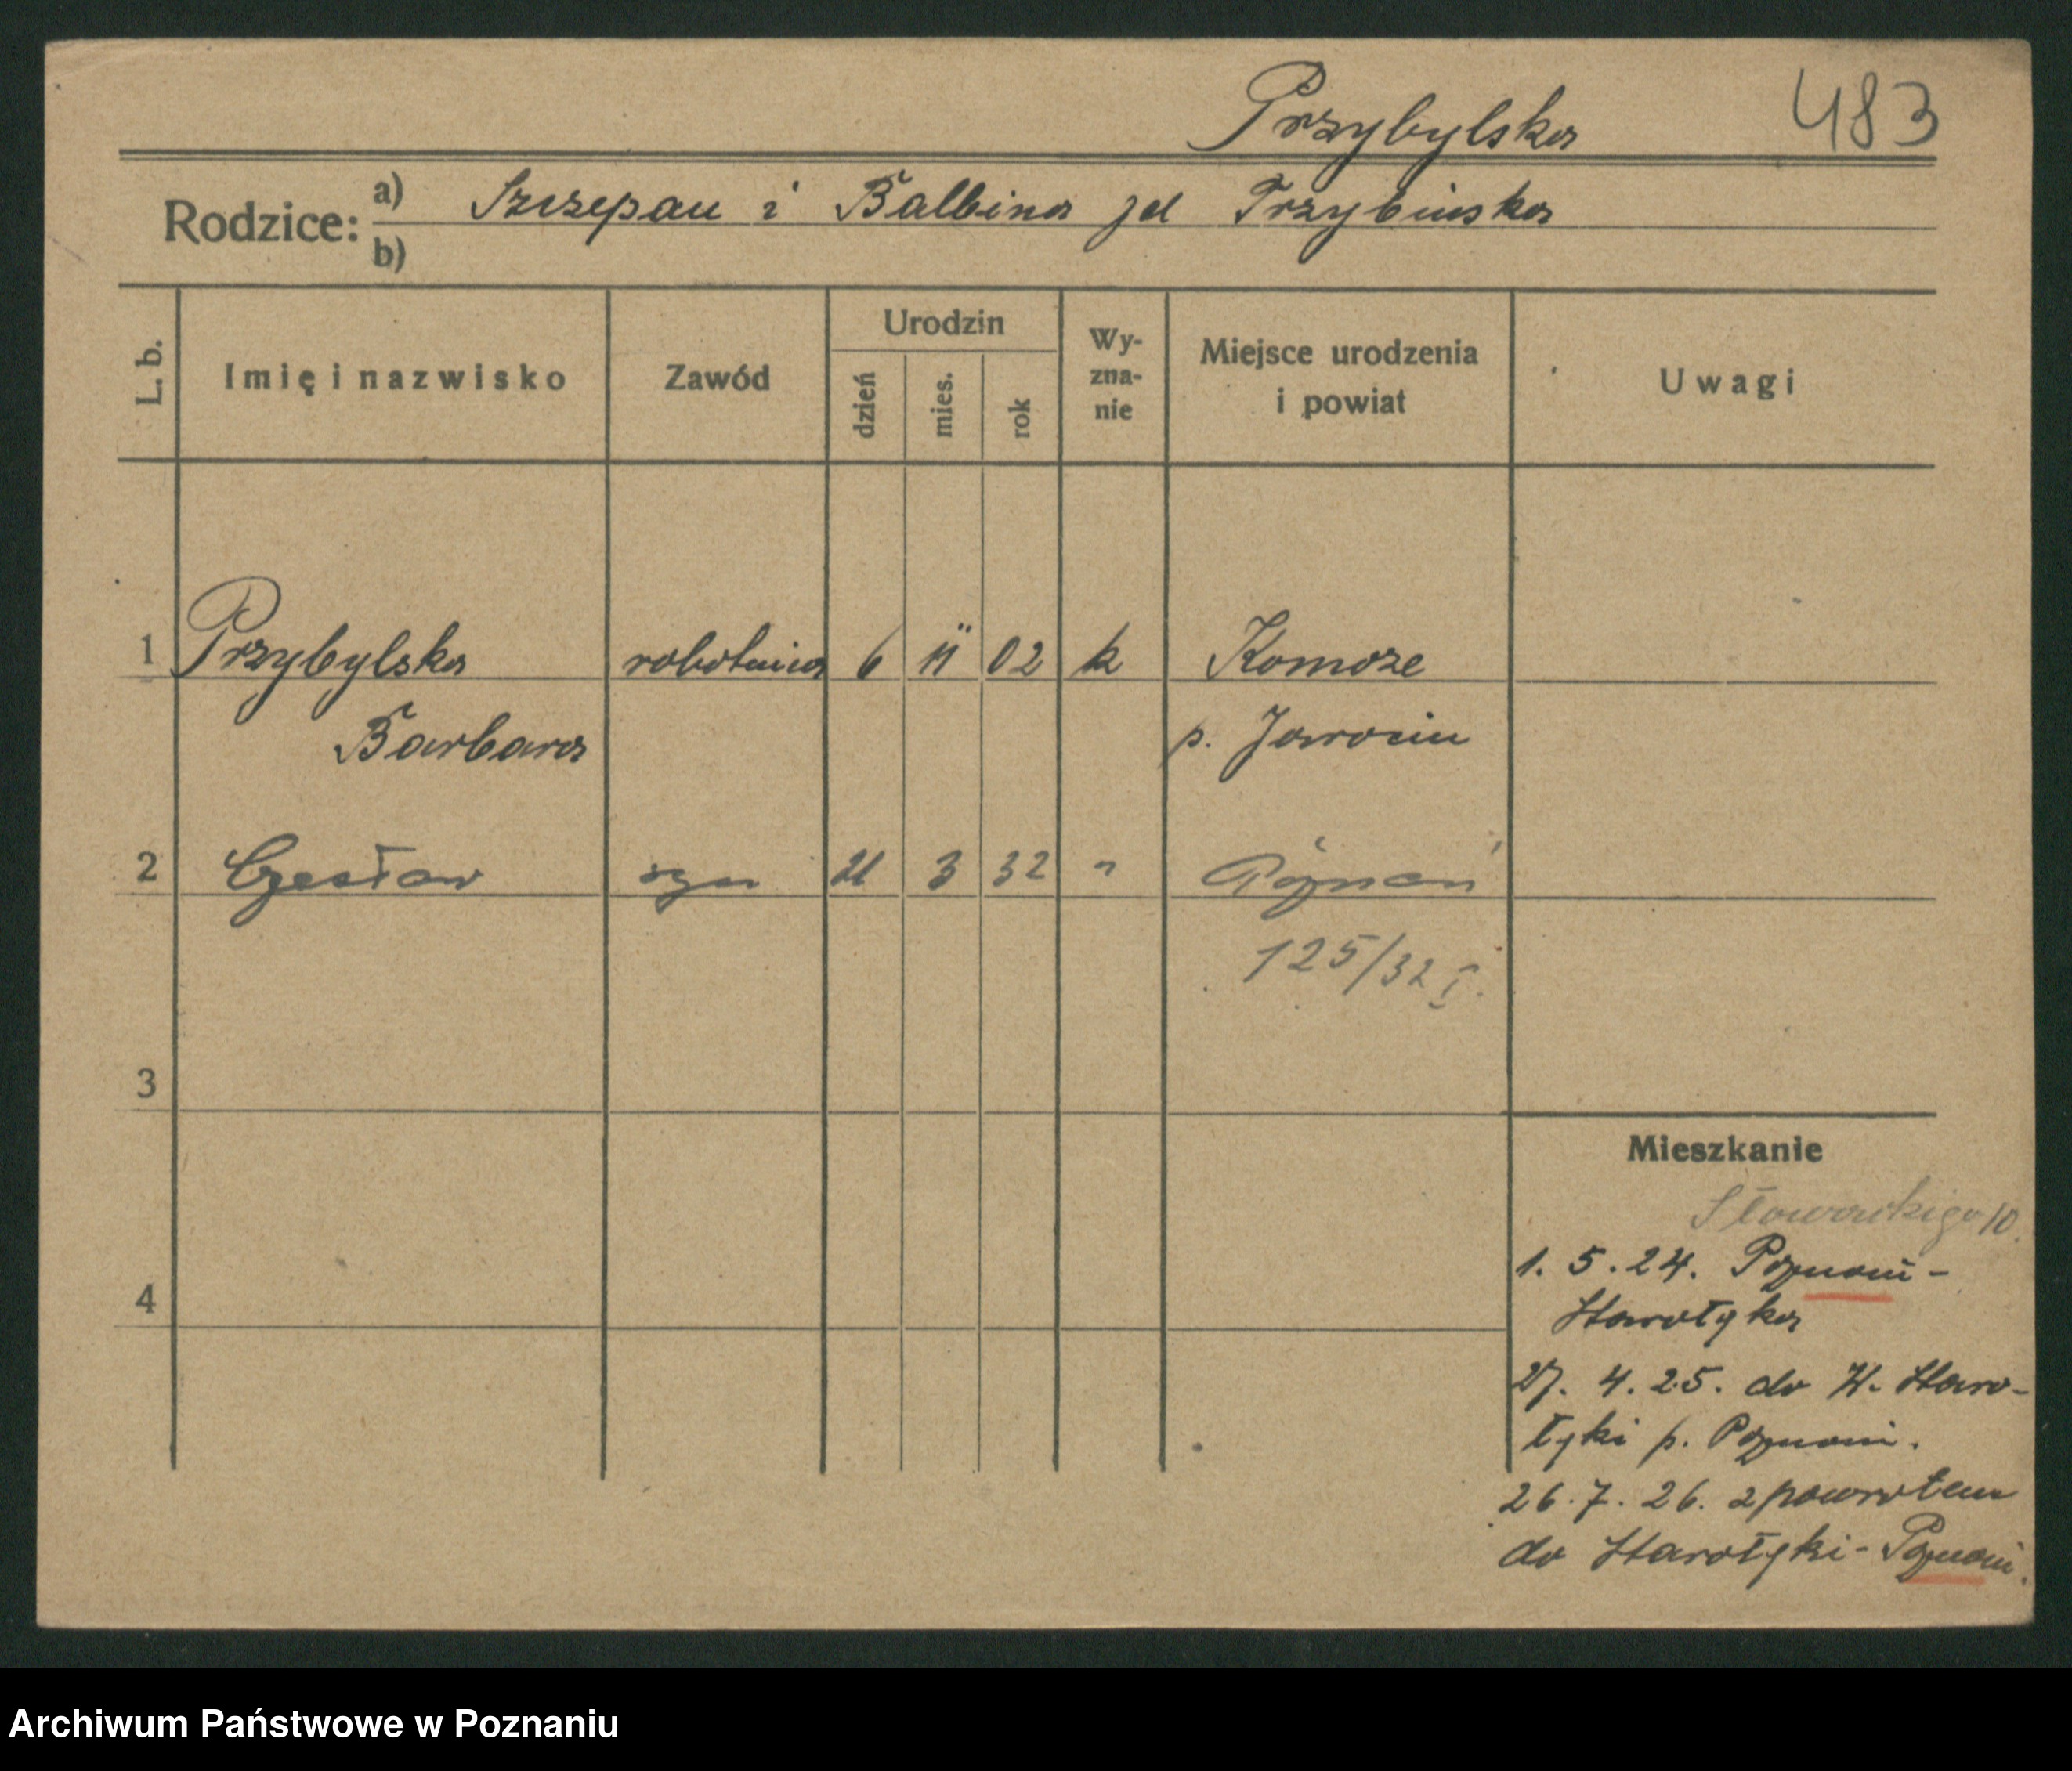 Przybylska 483
Rodzice: a) Szczepan i Balbina zd Trzybińska
b)
L. b. Imię i nazwisko Zawód Urodzin dzień mies. rok Wy-zna-nie Miejsce urodzenia i powiat Uwagi
1 Przybylska robotnica 6 11 02 k Komorze
Barbara p. Jarocin
2 Czesław syn 21 3 32 " Poznań
125/32 I.
3
Mieszkanie
Słowackiego 10.
1. 5. 24. Poznań-
4 Starołęka
27. 4. 25. do W. Staro-
łęki p. Poznań.
26. 7. 26. z powrotem
do Starołęki-Poznań.
Archiwum Państwowe w Poznaniu